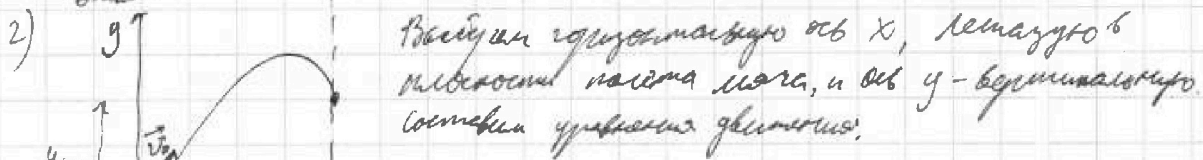 2) y Выберем горизонтальную ось x, лежащую в
плоскости полёта мяча, и ось y - вертикальную.
v₀ составим уравнения движения: